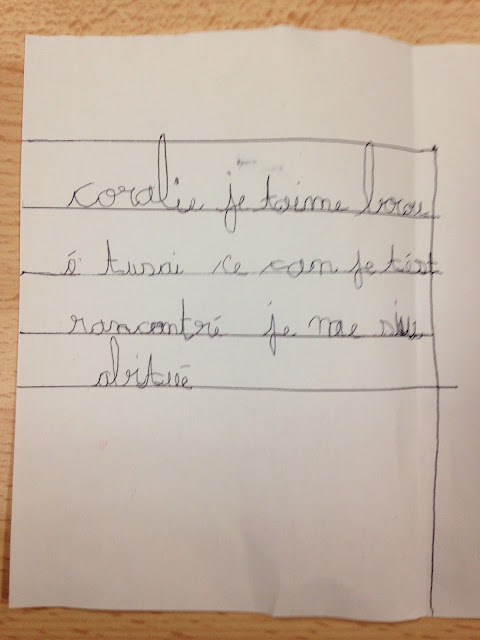 coralie je taime bocou
é tusai ce can je tést
rancontré je mae siu
abitué